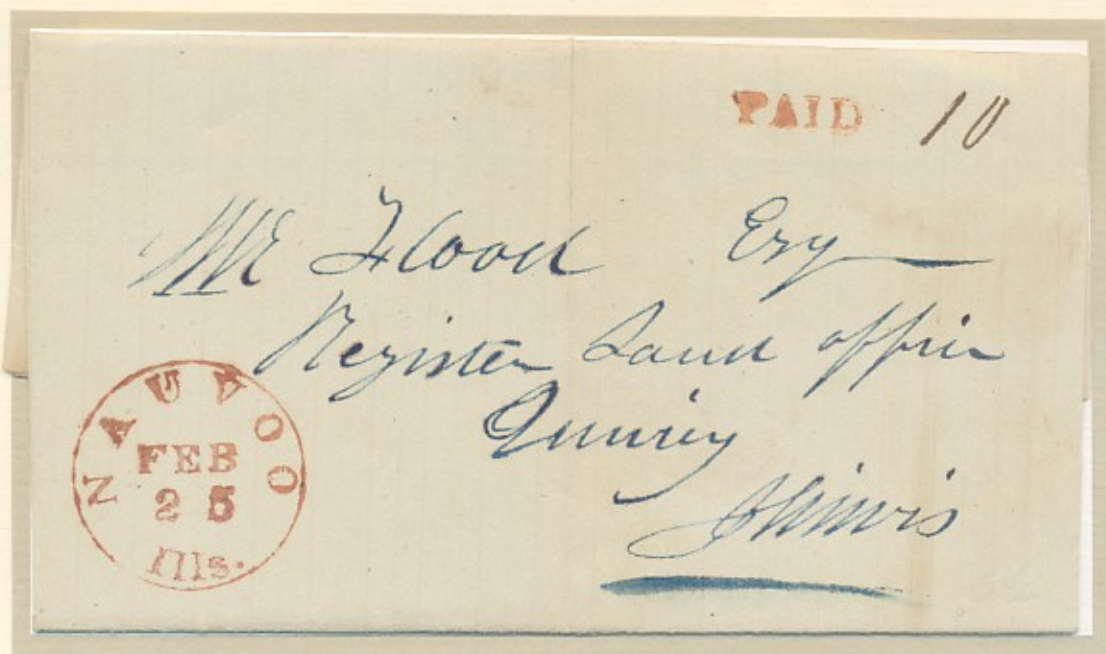 PAID 10
Mr Flood Esq
Register Land office
Quincy
Illinois
NAUVOO
FEB
25
Ills.